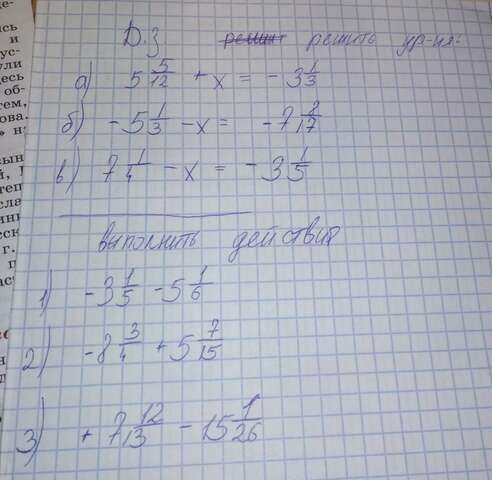 Д.з решить ур-ия:
а) 5 5/12 + x = - 3 1/3
б) - 5 1/3 - x = - 7 2/17
в) 7 1/4 - x = - 3 1/5
выполнить действия
1) - 3 1/5 - 5 1/6
2) - 8 3/4 + 5 7/15
3) + 7 12/13 - 15 1/26